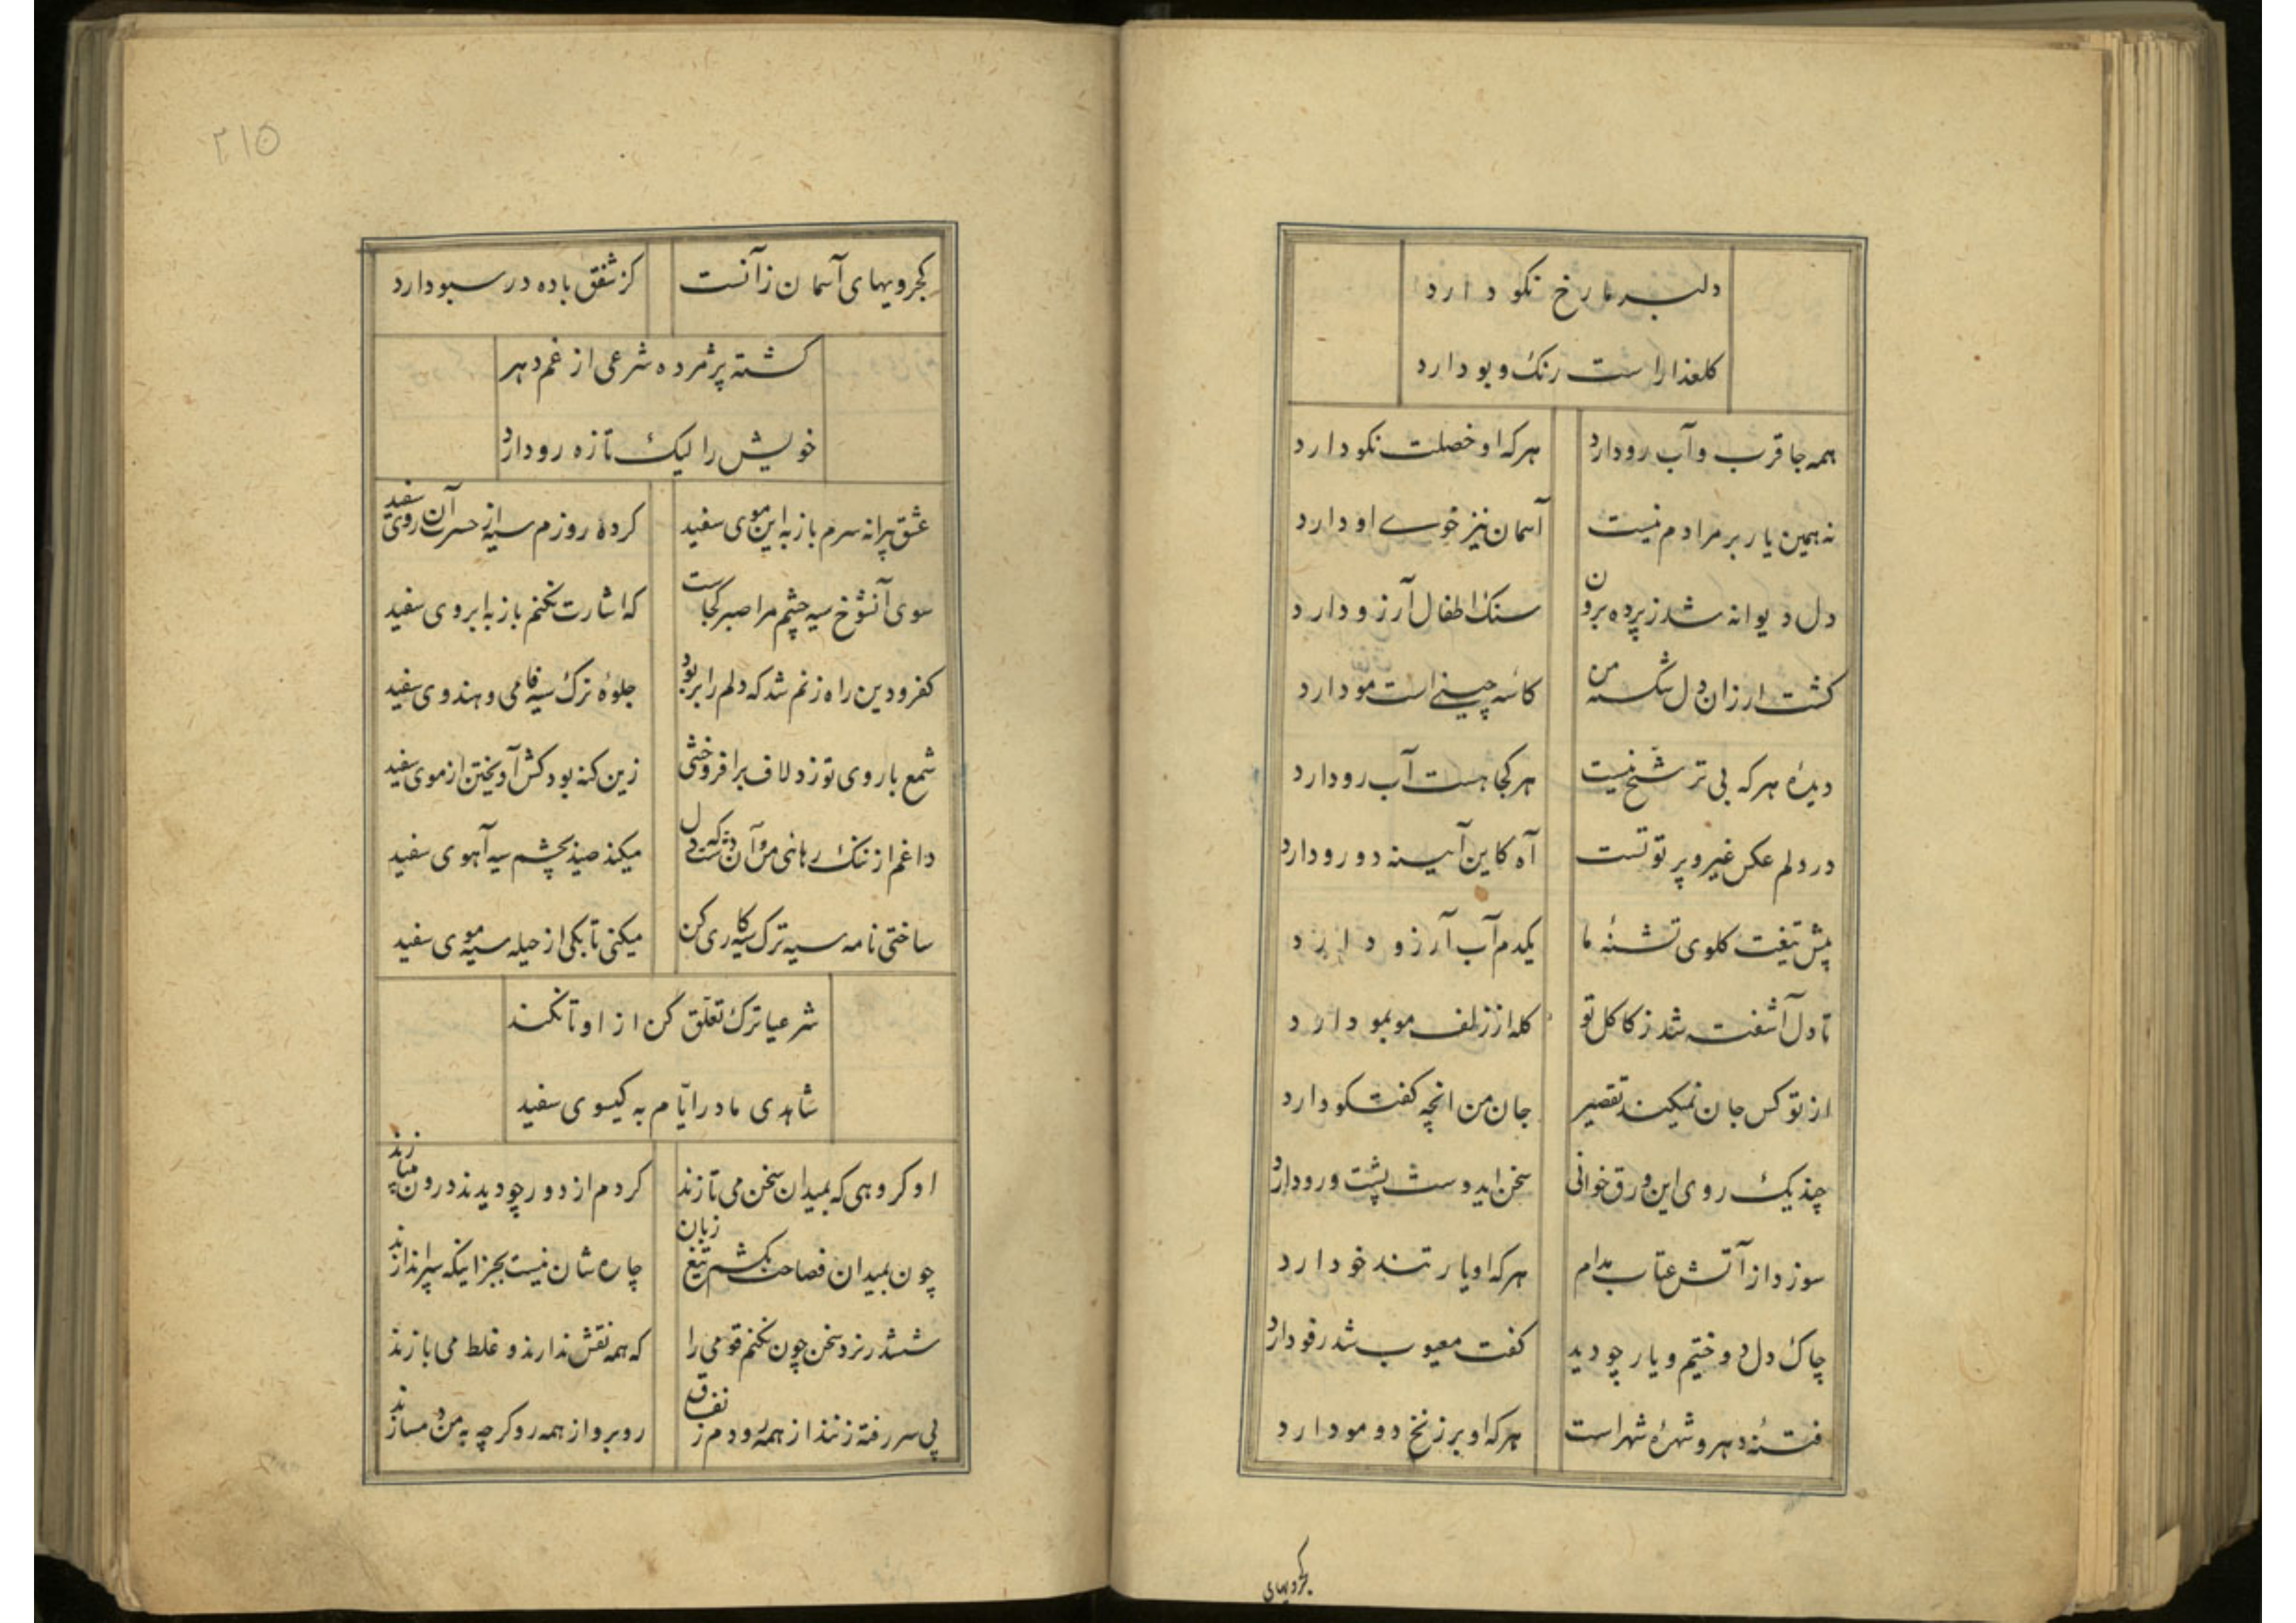 دلبر ما رخ نکو دارد
کلعذار است رنک و بو دارد
همه جا قرب و آب رو دارد هرکه او خصلت نکو دارد
نه همین یار بر مرادم نیست آسمان نیز خوی او دارد
دل دیوانه شد ز پرده برون سنک اطفال آرزو دارد
کشت ارزان دل شکسته من کاسه چینی است مو دارد
دیدۀ هرکه بی ترشح نیست هرکجا هست آب رو دارد
در دلم عکس غیر و پرتو تست آه کاین آینه دو رو دارد
پیش تیغت کلوی تشنۀ ما یکدم آب آرزو دارد
تا دل آشفته شد ز کاکل تو کله از زلف مو بمو دارد
از تو کس جان نمیکند تقصیر جان من انچه کفتکو دارد
چند یک روی این ورق خوانی سخن ایدوست پشت و رو دارد
سوزد از آتش عتاب مدام هرکه او یار تند خو دارد
چاک دل دوختیم و یار چو دید کفت معیوب شد رفو دارد
فتنۀ دهر و شهرۀ شهر است هرکه او بر زنخ دو مو دارد
کجرویهای
۲۱۵
کجرویهای آسمان زآنست کز شفق باده در سبو دارد
کشته پژمرده شرعی از غم دهر
خویش را لیک تازه رو دارد
عشق پیرانه سرم باز به این موی سفید کرده روزم سیه از حسرت آن روی سفید
سوی آنشوخ سیه چشم مرا صبر کجاست که اشارت نکنم باز به ابروی سفید
کفر و دین راه زنم شد که دلم را بربود جلوۀ ترک سیه فامی و هندوی سفید
شمع با روی تو زد لاف برافروختنی زین کنه بود کش آویختن از موی سفید
داغم از ننک رهائی من و آن دشت که دل میکند صید بچشم سیه آهوی سفید
ساختی نامه سیه ترک سیه کاری کن میکنی تا بکی از حیله سیه موی سفید
شرعیا ترک تعلّق کن از او تا نکند
شاهدی مادر ایّام به کیسوی سفید
او کروهی که بمیدان سخن می تازند کردم از دور چو دیدند درون میبازند
چون بمیدان فصاحت بکشم تیغ زبان چاره شان نیست بجز اینکه سپر اندازند
ششدر نرد سخن چون نکنم قومی را که همه نقش ندارند و غلط می بازند
پی سر رفته زنند از همه رو دم ز نفاق روبرو از همه رو کرچه به من دمسازند